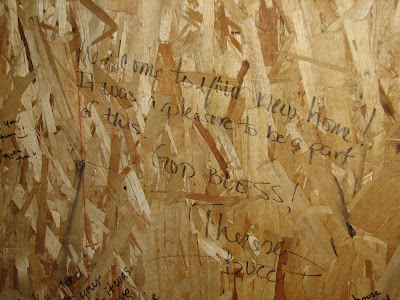 Welcome to your new home!
It was a pleasure to be a part
of this.
GOD BLESS!
Therese
Bucci
you
your
it was
house